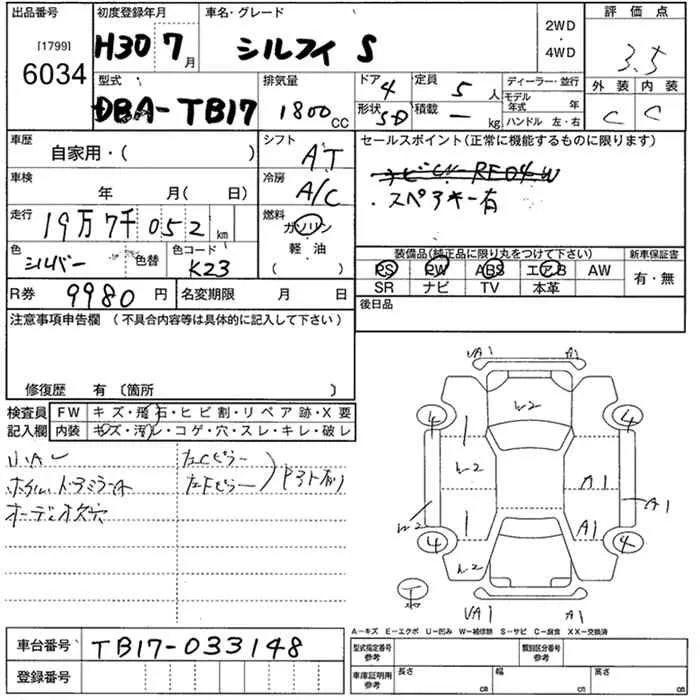 出品番号 初度登録年月 車名・グレード 評価点
[1799]
6034
H30 7月 シルフィ S 2WD 4WD 3.5
型式 排気量 ドア 4 定員 5人 ディーラー・並行 外装 内装
DBA-TB17 1800CC 形状 SD 積載 — kg モデル年式 年 C C
ハンドル 左・右
車歴 自家用・( ) シフト AT セールスポイント(正常に機能するものに限ります)
車検 年 月( 日) 冷房 A/C
・スペアキー有
走行 19万7千052km 燃料 ガソリン
軽・油
( )
色 シルバー 色替 色コード K23
装備品(純正品に限り丸をつけて下さい) 新車保証書
PS PW ABS エアB AW 有・無
SR ナビ TV 本革
R券 9980円 名変期限 月 日 後日品
注意事項申告欄(不具合内容等は具体的に記入して下さい)
修復歴 有〔箇所 〕
検査員 FW キズ・飛石・ヒビ割・リペア跡・X要
記入欄 内装 キズ・汚レ・コゲ・穴・スレ・キレ・破レ
左Cピラー
オーディオ欠穴
UA1 A1
4 W2 4
W2 A1
W2 A1
4 A1 4
W2
UA1 A1
A-キズ E-エクボ U-凹み W-補修跡 S-サビ C-腐食 XX-交換済
車台番号 TB17-033148 型式指定番号 参考 類別区分番号 参考
登録番号 車庫証明用 参考 長さ cm 幅 cm 高さ cm